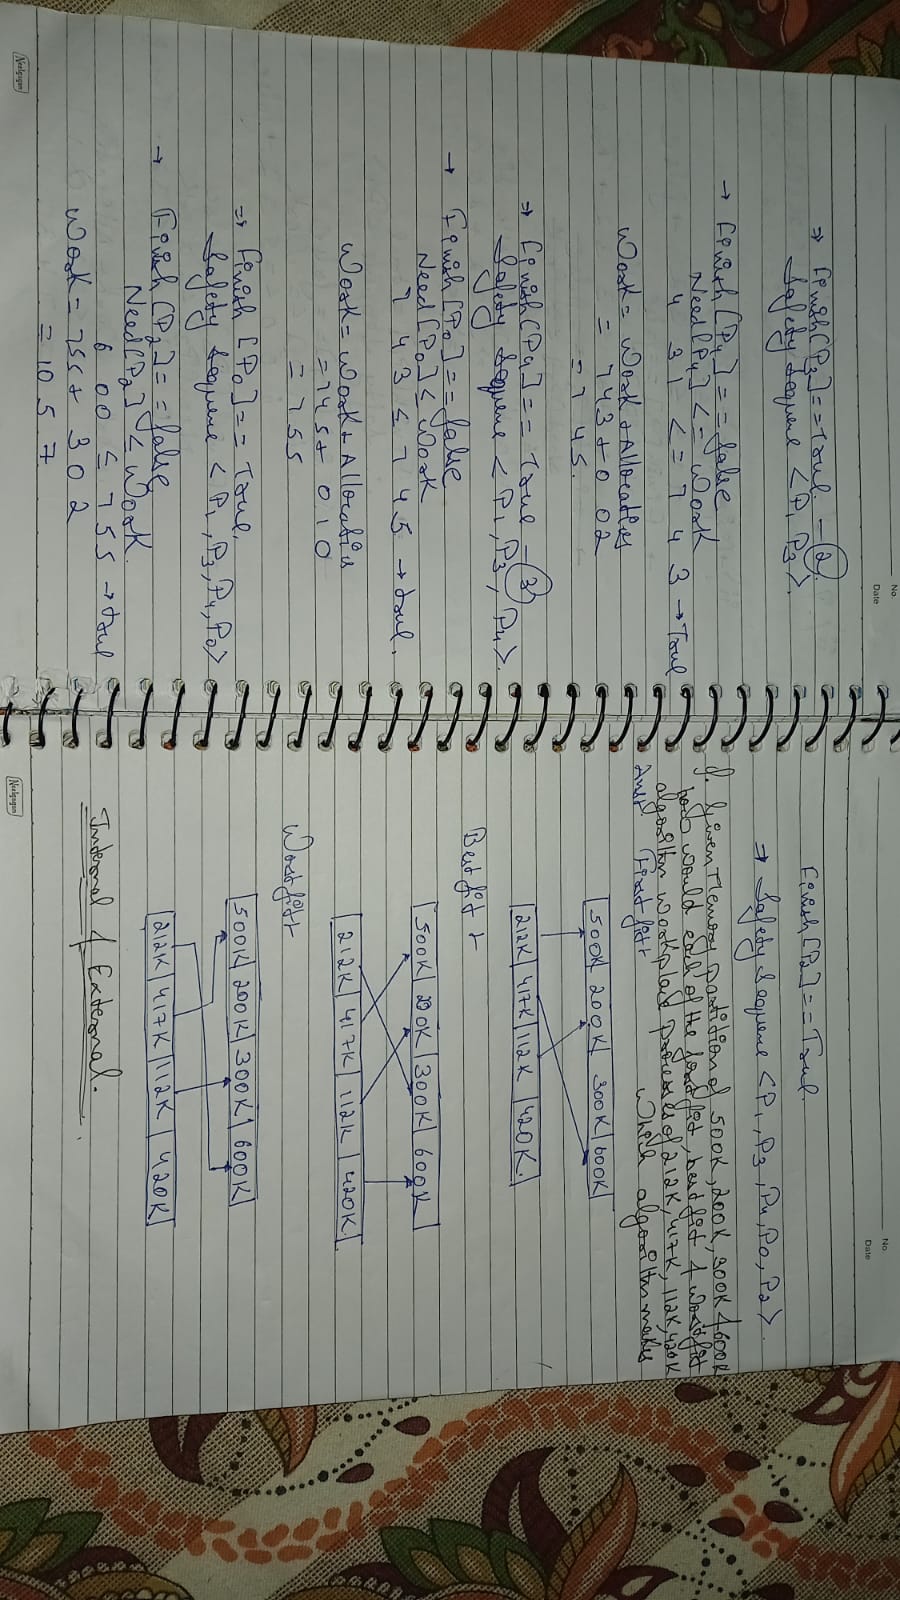 No.
Date
⇒ Finish[P3]==True. - 2
Safety Sequene <P1 P3>.
→ Finish[P4]==false
Need[P4]<=Work
4 3 1 <= 7 4 3 → True
Work = Work + Allocation
= 743 + 0 02
= 7 45.
⇒ Finish[P4]== True - 3
Safety Sequene <P1, P3, P4>.
→ Finish[P0]==false
Need[P0]≤ Work
7 4 3 ≤ 7 4 5 → true.
Work = Work + Allocation
= 745 + 0 1 0
= 7 5 5
⇒ Finish [P0]== True.
Safety Sequene <P1, P3, P4, P0>
→ Finish[P2]==false
Need[P2] ≤ Work.
6 00 ≤ 7 5 5 → true
Work = 755 + 3 0 2
= 10 5 7
Neelgagan
No.
Date
Finish[P2]==True.
⇒ Safety Sequene <P1, P3, P4, P0, P2>.
Given Memory partition of 500K, 200K, 300K & 600K
how would each of the first fit, best fit & worst fit
algorithm work place processes of 212K, 417K, 112K, 420K
First fit Which algorithm makes
500K 200K 300K 600K
212K 417K 112K 420K.
Best fit
500K 200K 300K 600K
212K 417K 112K 420K.
Worst fit
500K 200K 300K 600K
212K 417K 112K 420K
Internal & External.
Neelgagan